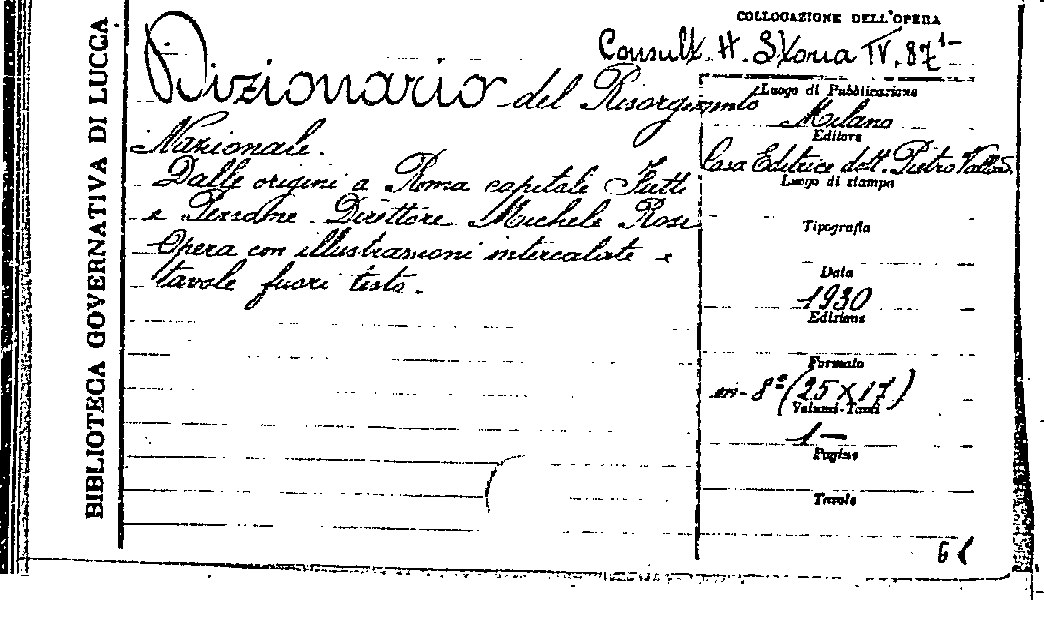 BIBLIOTECA GOVERNATIVA DI LUCCA
COLLOCAZIONE DELL'OPERA
Consult. H. Storia IV. 87 1-
Dizionario del Risorgimento
Nazionale.
Dalle origini a Roma capitale Fatti
e Persone. Direttore Michele Rosi
Opera con illustrazioni intercalate e
tavole fuori testo.
Luogo di Pubblicazione
Milano
Editore
Casa Editrice dott. Pietro Vallardi
Luogo di stampa
Tipografia
Data
1930
Edizione
Formato
in-8° (25 X 17)
Volumi-Tomi
1 —
Pagine
Tavole